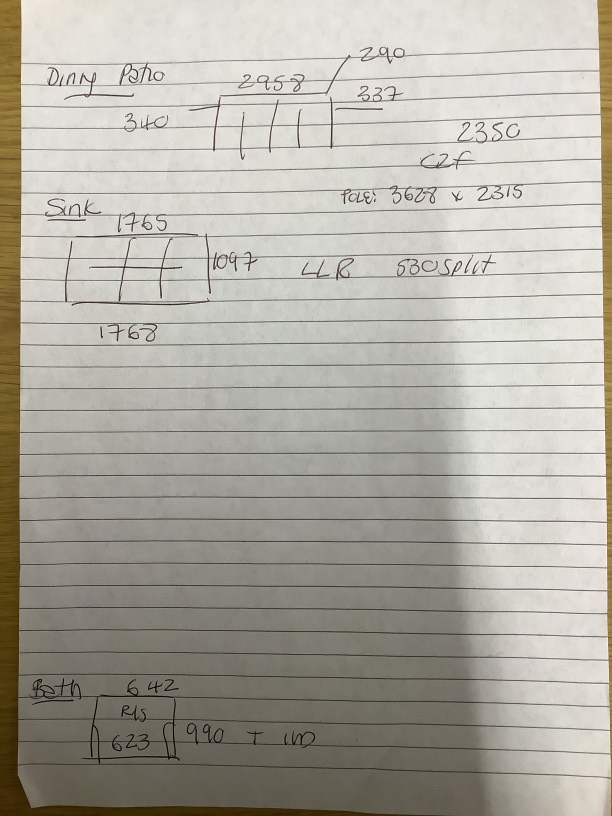 Dinny Patio
290
2958
337
340
2350
C2F
Pole: 3628 x 2315
Sink
1765
1097
LLR 530 Split
1768
Bath 642
R/S
623 990 T